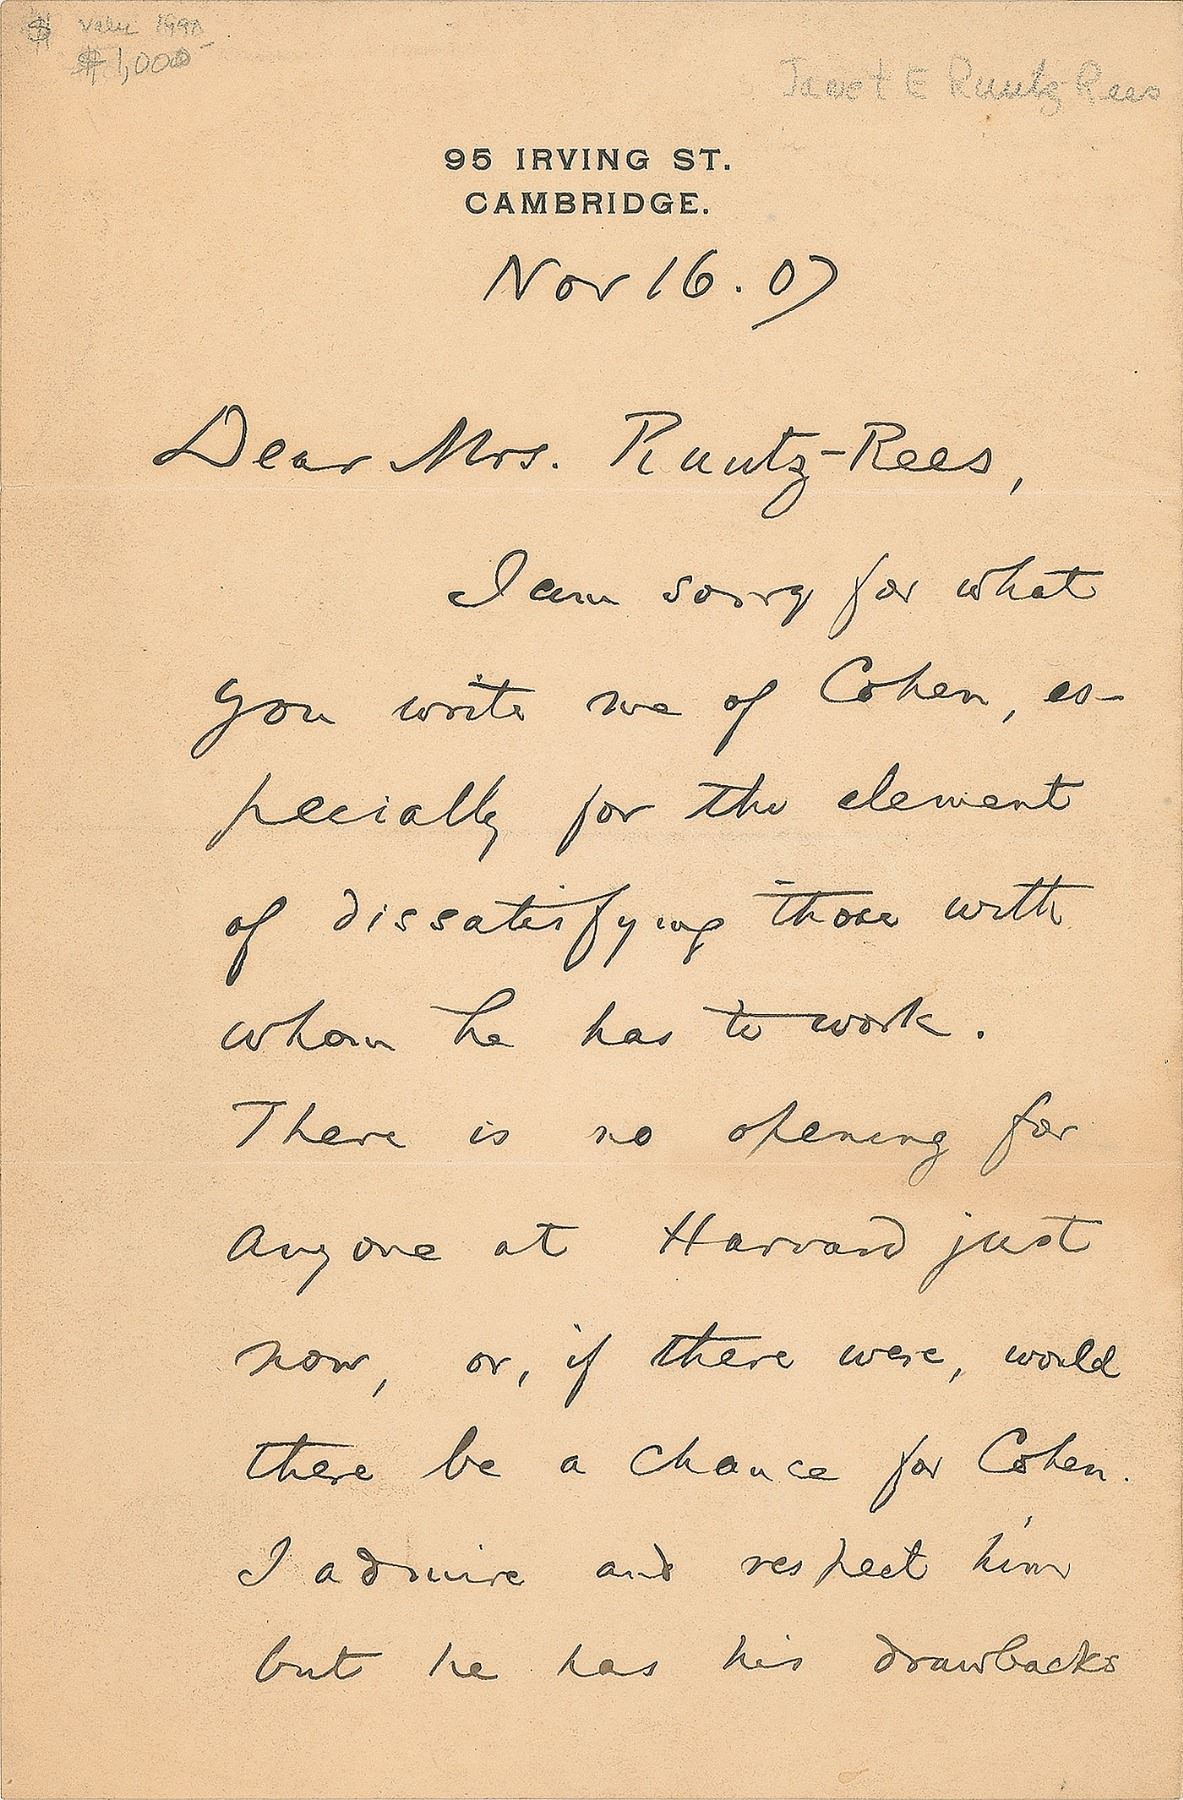 $ value 1990
$1,000
Janet E Runtz Rees
95 IRVING ST.
CAMBRIDGE.
Nov 16. 07
Dear Mrs. Runtz-Rees,
I am sorry for what
you write me of Cohen, es-
pecially for the element
of dissatisfying those with
whom he has to work.
There is no opening for
anyone at Harvard just
now, or, if there were, would
there be a chance for Cohen.
I admire and respect him
but he has his drawbacks